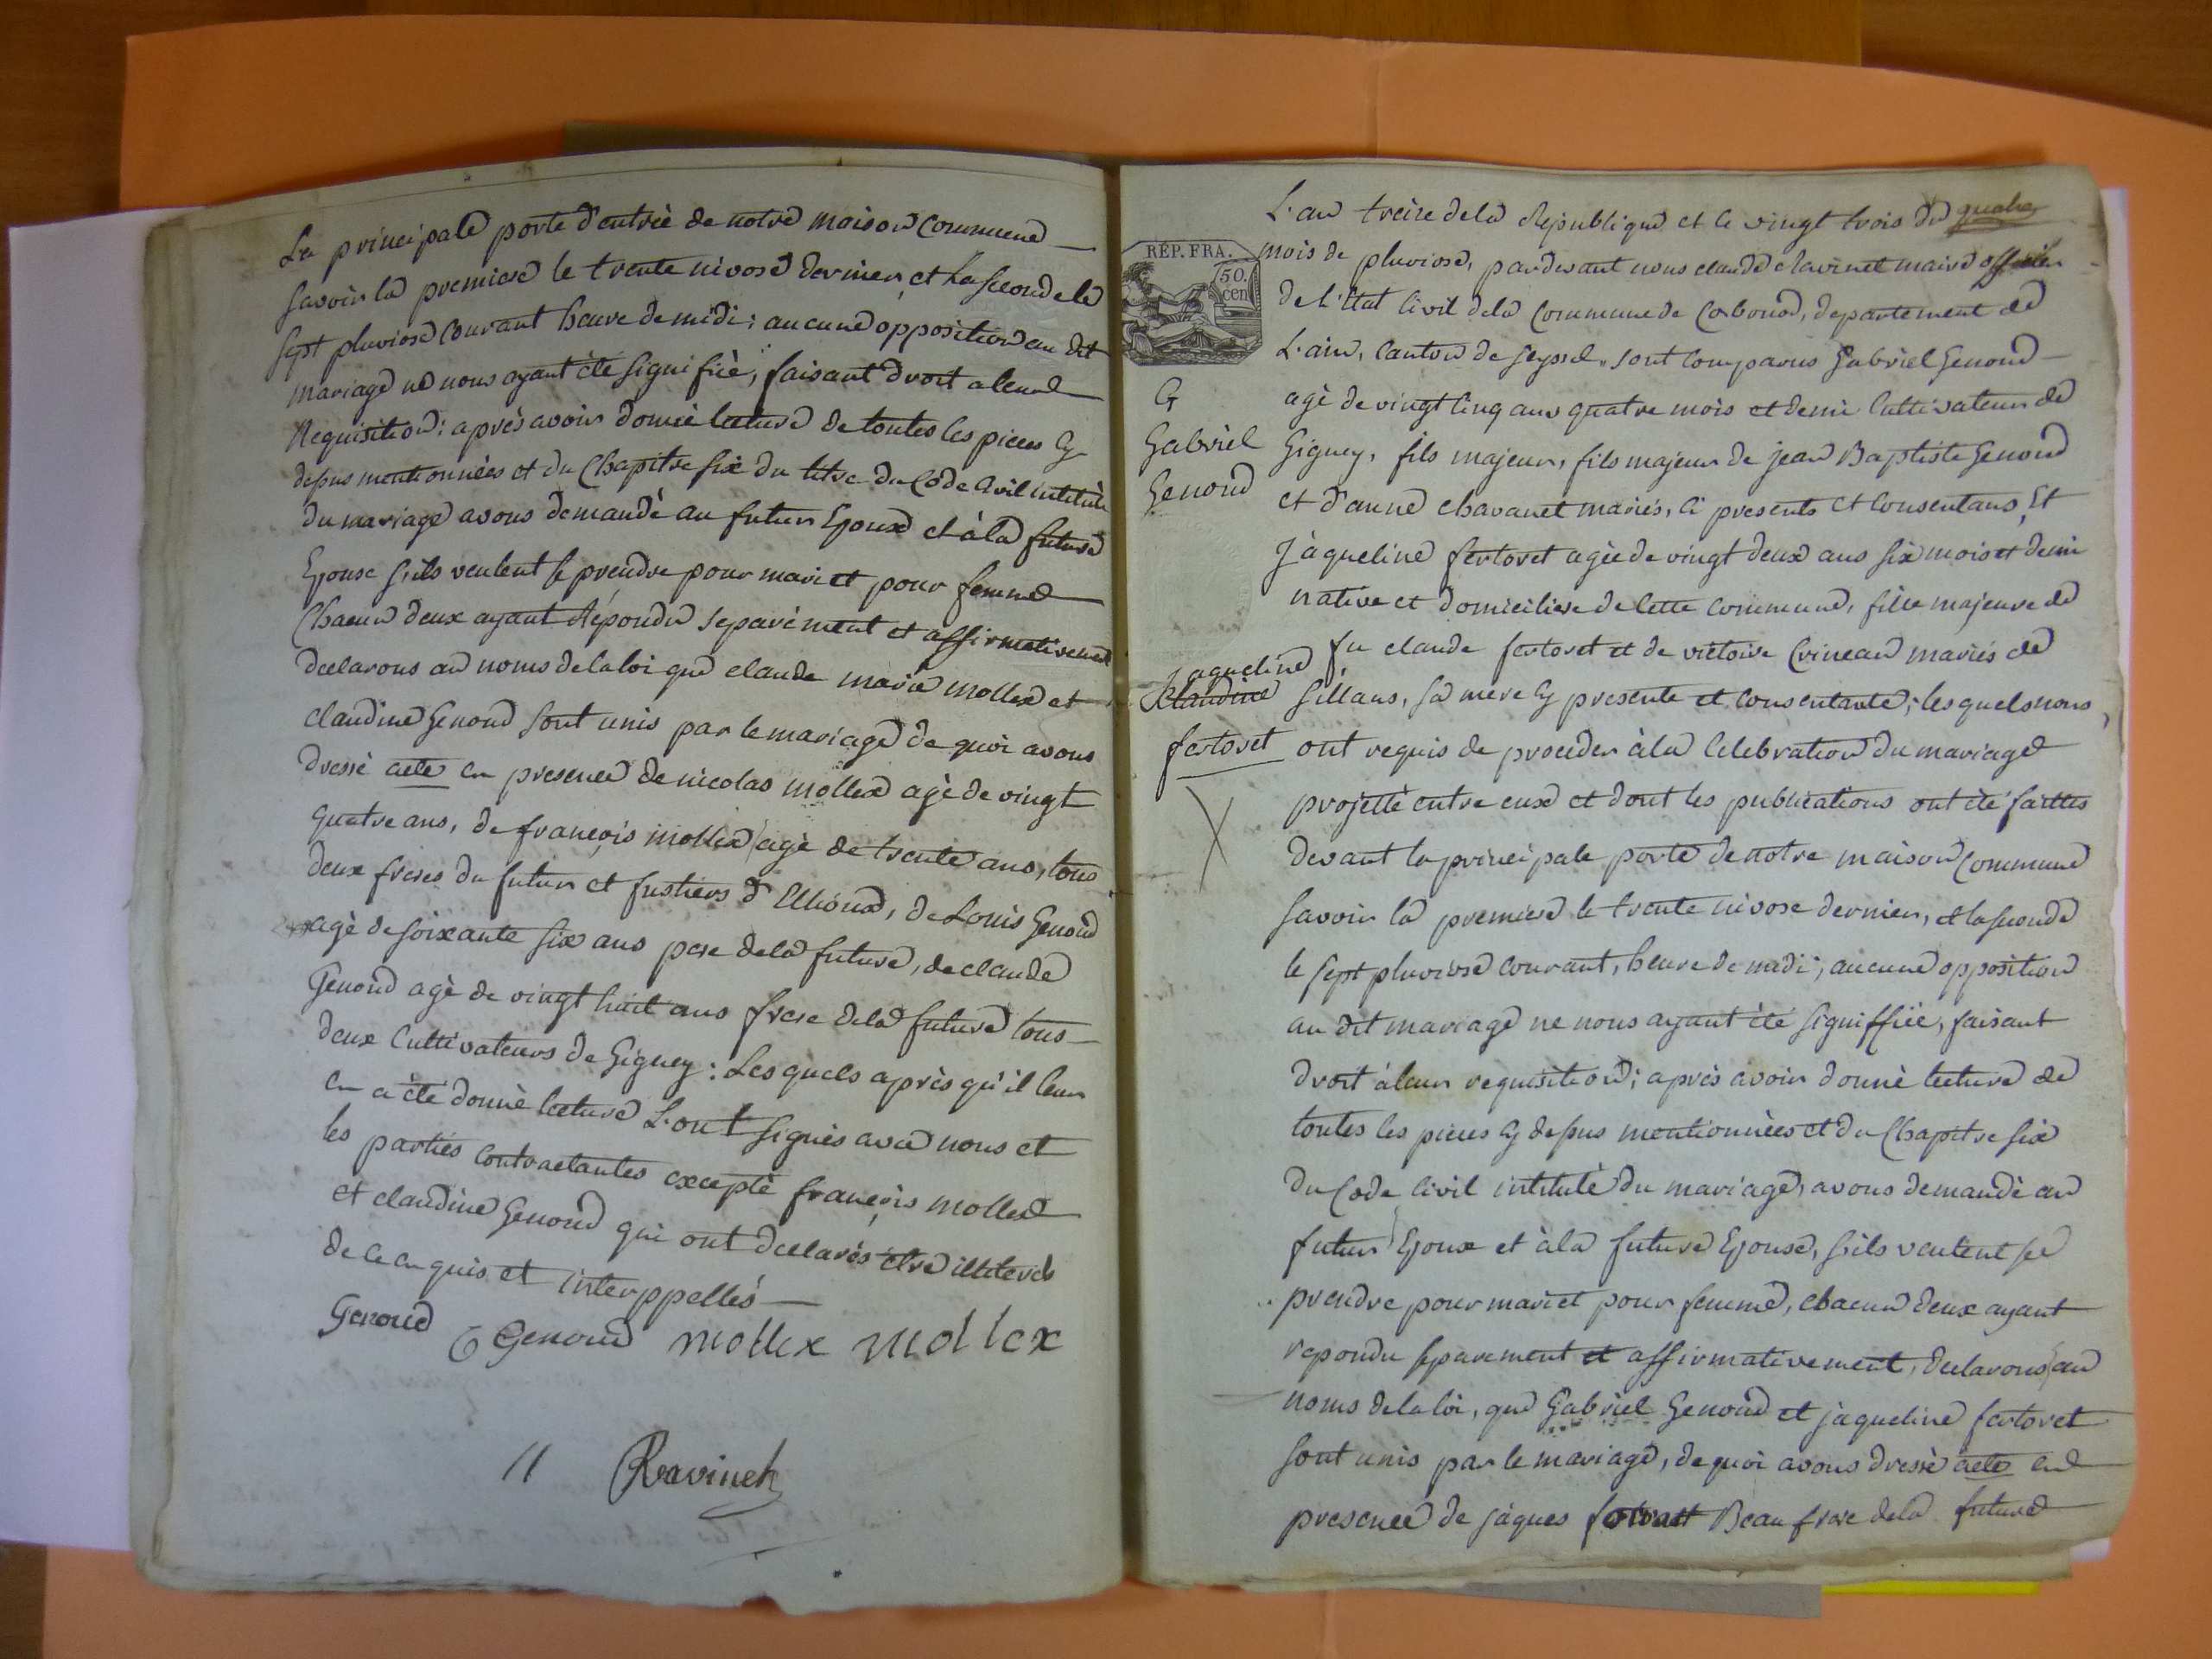 La principale porte d'entrèe de notre maison Commune
Savoir la premiere le trente nivose dernier, et la seconde le
Sept pluviose Courant heure de midi; aucune opposition au dit
mariage ne nous ayant èté signifiiè, faisant droit a leur
Requisition; après avoir donnè lecture de toutes les pieces cy
dessus mentionnèes et du Chapitre six du titre du Code Civil intitulè
du mariage avons demandè au futur Epoux et à la future
Epouse s'ils veulent se prendre pour mari et pour femme
Chacun deux ayant Répondu separèment et affirmativement
declarons au noms de la loi que claude marie mollex et
claudine Genoud sont unis par le mariage de quoi avons
dressè acte en presence de nicolas mollex agè de vingt
quatre ans, de françois mollex agè de trente ans, tous
deux freres du futur et fustiers d', de Louis Genoud
agè de soixante six ans pere de la future, de claude
Genoud agè de vingt huit ans frere de la future tous
deux Cultivateurs de Gigney: Lesquels après qu'il leur
en a èté donnè lecture L'ont signès avec nous et
les parties Contractantes exceptè françois mollex
et claudine Genoud qui ont declarès être illiterès
de ce enquis et interppellés
Genoud Genoud mollex mollex
L'an treize de la Republique et le vingt trois du quatre
RÉP. FRA.
50.
cen
mois de pluviose, pardevant nous claude chavinet maire officier
de l'Etat Civil de la Commune de Corbonod, departement de
L'ain, Canton de seyssel. sont comparus Gabriel Genoud
G
Gabriel
Genoud
agè de vingt cinq ans quatre mois et demi Cultivateur de
Gigney, fils majeur, fils majeur de jean Baptiste Genoud
et d'anne chavanet mariés, ci presents et Consentans, Et
Jàqueline fertoret agèe de vingt deux ans six mois et demi
native et domiciliere de cette commune, fille majeure de
fu claude fertoret et de victoire Crinean mariés de
Jaqueline
claudine
fertoret
Sillans, sa mere cy presente et Consentante; lesquels nous
ont requis de proceder à la Celebration du mariage
projettè entre eux et dont les publications ont èté faittes
devant la principale porte de notre maison Commune
Savoir la premiere le trente nivose dernier, et la seconde
le sept pluviose courant, heure de midi; aucune opposition
au dit mariage ne nous ayant èté signiffièe, faisant
droit à leur requisition; après avoir donnè lecture de
toutes les pieces cy dessus mentionnèes et du Chapitre six
du Code Civil intitulè du mariage, avons demandè au
futur Epoux et à la future Epouse, s'ils veulent se
prendre pour mari et pour femme, chacun deux ayant
repondu separement et affirmativement, declarons au
noms de la loi, que Gabriel Genoud et jàqueline fertoret
sont unis par le mariage, de quoi avons dressè acte en
presence de jàques Beau frere de la future